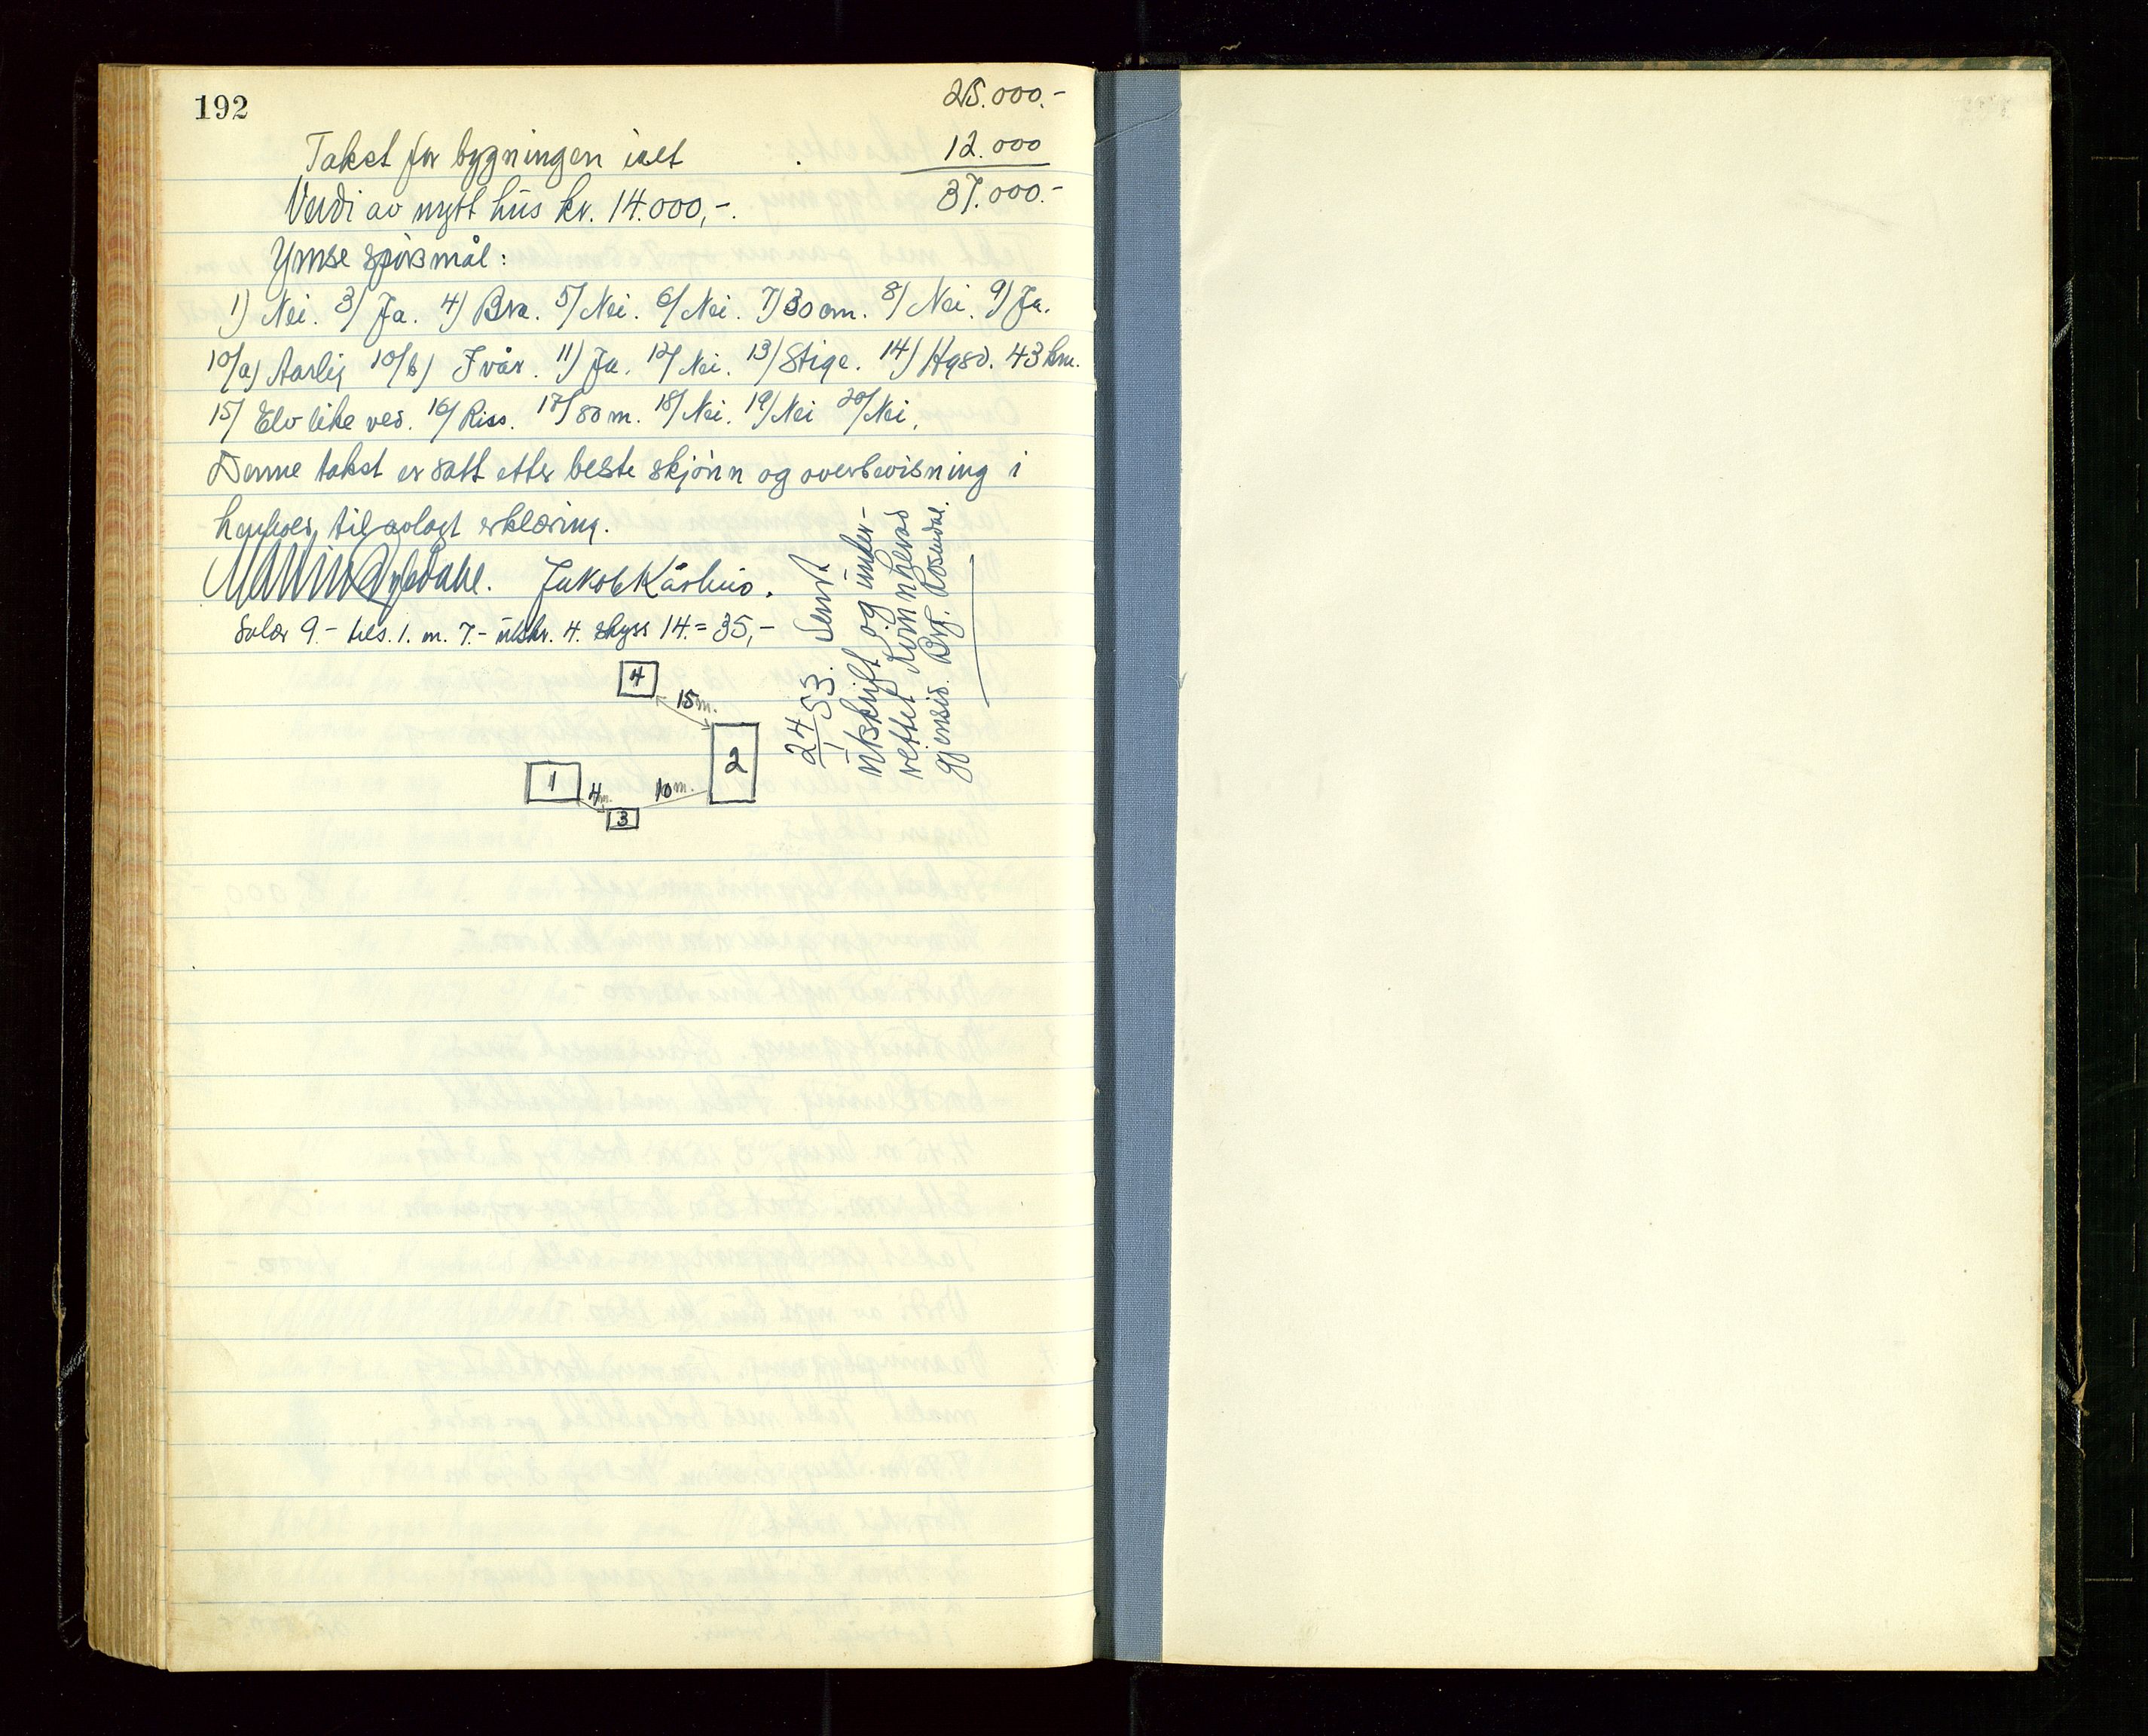 192
25.000.-
Takst for bygningen ialt 12.000
Verdi av nytt hus kr. 14.000,-. 37.000.-
Ymse spörsmål:
1) Nei. 3/ Ja. 4) Bra. 5/ Nei. 6/ Nei. 7/ 30 cm. 8/ Nei. 9/ Ja.
10/a) Aarlig 10/b) I vår. 11) Ja. 12/ Nei. 13/ Stige. 14) Hgsd. 43 km.
15/ Elv like ved. 16/ Riss. 17/ 80 m. 18/ Nei. 19/ Nei 20/ Nei.
Denne takst er satt etter beste skjönn og overbevisning i
henhold til avlagt erklæring.
Jakob Kårhus.
Salær 9.- bes. 1. m. 7.- utskr. 4. skyss 14. = 35,-
4
15 m.
2
1
4 m.
10 m.
3
24/1 53. Sendt
utskrift og under-
rettet Kvinnherad
gjensid. Brf. Rosendal.